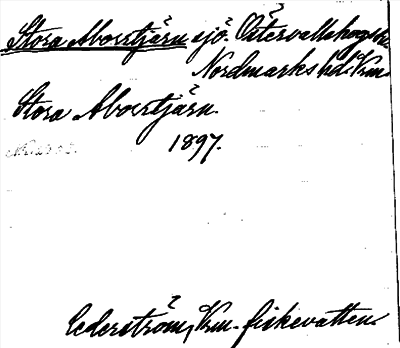 Stora Aborrtjärn sjö. Östervallskogs sn
Nordmarks hd. Vrm
Stora Aborrtjärn.
1897.
Cederström, Vrm. fiskevatten.